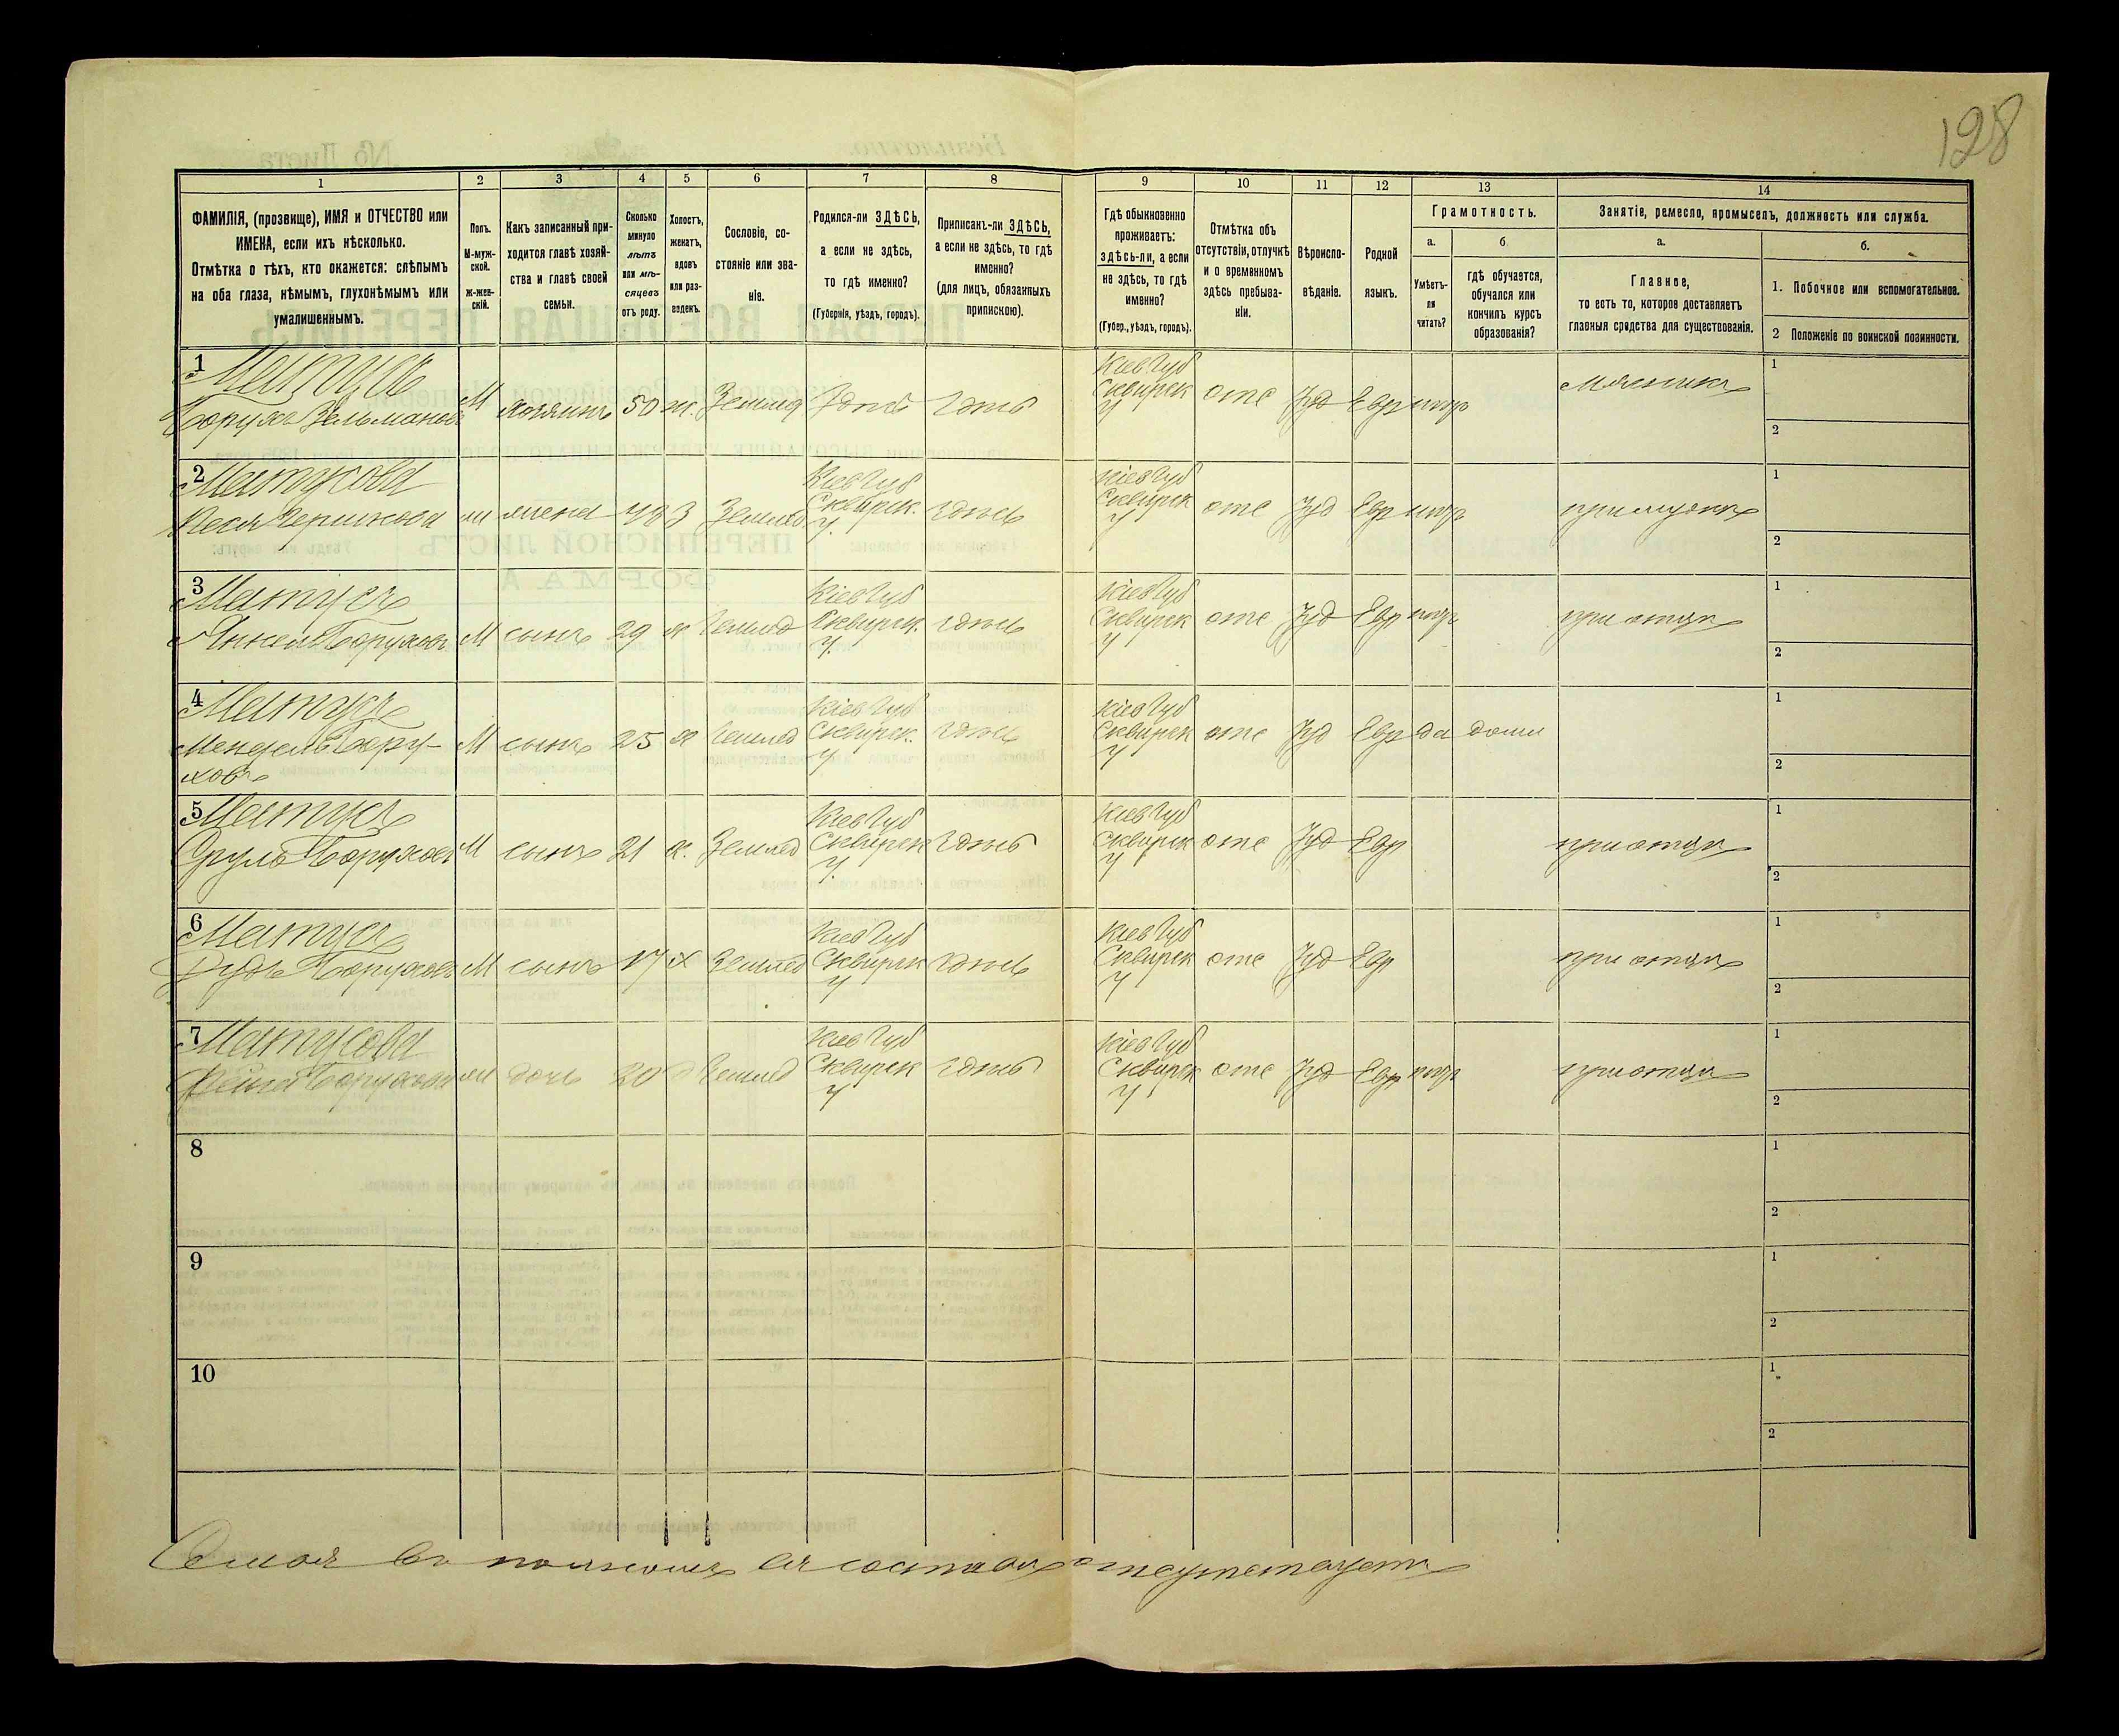 128
1
2
3
4
5
6
7
8
9
10
11
12
13
14
ФАМИЛІЯ, (прозвище), ИМЯ и ОТЧЕСТВО или
ИМЕНА, если ихъ нѣсколько.
Отмѣтка о тѣхъ, кто окажется: слѣпымъ
на оба глаза, нѣмымъ, глухонѣмымъ или
умалишеннымъ.
Полъ.
М-муж-
ской.
Ж-жен-
скій.
Какъ записанный при-
ходится главѣ хозяй-
ства и главѣ своей
семьи.
Сколько
минуло
лѣтъ
или мѣ-
сяцевъ
отъ роду.
Холостъ,
женатъ,
вдовъ
или раз-
веденъ.
Сословіе, со-
стояніе или зва-
ніе.
Родился-ли ЗДѢСЬ,
а если не здѣсь,
то гдѣ именно?
(Губернія, уѣздъ, городъ).
Приписанъ-ли ЗДѢСЬ,
а если не здѣсь, то гдѣ
именно?
(для лицъ, обязанныхъ
припискою).
Гдѣ обыкновенно
проживаетъ:
здѣсь-ли, а если
не здѣсь, то гдѣ
именно?
(Губер., уѣздъ, городъ).
Отмѣтка объ
отсутствіи, отлучкѣ
и о временномъ
здѣсь пребыва-
ніи.
Вѣроиспо-
вѣданіе.
Родной
языкъ.
Грамотность.
а.
Умѣетъ-
ли
читать?
б.
гдѣ обучается,
обучался или
кончилъ курсъ
образованія?
Занятіе, ремесло, промыселъ, должность или служба.
а.
Главное,
то есть то, которое доставляетъ
главныя средства для существованія.
б.
1. Побочное или вспомогательное.
2 Положеніе по воинской повинности.
1 Матусъ
Борухъ Зельмановъ М хозяинъ 50 ж. Землед здѣсь здѣсь Кіев Губ
Сквирск
У отс Іуд Евр негр Мясникъ 1
2
2 Матусова
жена З Землед Кіев Губ
Сквирск.
У. здѣсь Кіев Губ
Сквирск
У отс Іуд Евр негр при мужѣ 1
2
3 Матусъ
Янкель Боруховъ М сынъ 29 х Землед Кіев Губ
Сквирск.
У. здѣсь Кіев Губ
Сквирск
У отс Іуд Евр негр при отцѣ 1
2
4 Матусъ
Мендель Бору-
ховъ М сынъ 25 х Землед Кіев Губ
Сквирск.
У здѣсь Кіев Губ
Сквирск
У отс Іуд Евр да дома 1
2
5 Матусъ
Сруль Боруховъ М сынъ 21 х. Землед Кіев Губ
Сквирск
У. здѣсь Кіев Губ
Сквирск
У отс Іуд Евр при отцѣ 1
2
6 Матусъ
Боруховъ М сынъ 17 х Землед Кіев Губ
Сквирск
У здѣсь Кіев Губ
Сквирск
У отс Іуд Евр при отцѣ 1
2
7 Матусова
дочь 20 Землед Кіев Губ
Сквирск
У здѣсь Кіев Губ
Сквирск
У отс Іуд Евр негр при отцѣ 1
2
8 1
2
9 1
2
10 1
2
Семья въ полномъ ея составѣ отсутствуетъ